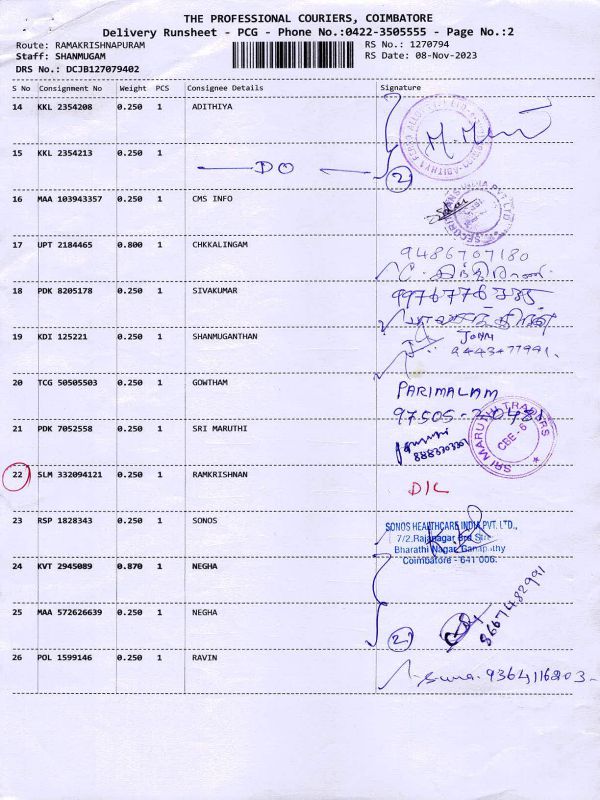 THE PROFESSIONAL COURIERS, COIMBATORE
Delivery Runsheet - PCG - Phone No.:0422-3505555 - Page No.:2
Route: RAMAKRISHNAPURAM RS No.: 1270794
Staff: SHANMUGAM RS Date: 08-Nov-2023
DRS No.: DCJB127079402
S No Consignment No Weight PCS Consignee Details Signature
14 KKL 2354208 0.250 1 ADITHIYA
15 KKL 2354213 0.250 1 DO 2
16 MAA 103943357 0.250 1 CMS INFO
17 UPT 2184465 0.800 1 CHKKALINGAM 9486707180
18 PDK 8205178 0.250 1 SIVAKUMAR
19 KDI 125221 0.250 1 SHANMUGANTHAN JOHN
9443477941.
20 TCG 50505503 0.250 1 GOWTHAM PARIMALAM
97505-20481
21 PDK 7052558 0.250 1 SRI MARUTHI
SRI MARUTHI TRADERS
CBE-6
22 SLM 332094121 0.250 1 RAMKRISHNAN D/L
23 RSP 1828343 0.250 1 SONOS
SONOS HEALTHCARE INDIA PVT. LTD.,
7/2,Rajanagar 3rd Street
Bharathi Nagar, Ganapathy
Coimbatore - 641 006.
24 KVT 2945089 0.870 1 NEGHA
25 MAA 572626639 0.250 1 NEGHA 2 8667482991
26 POL 1599146 0.250 1 RAVIN